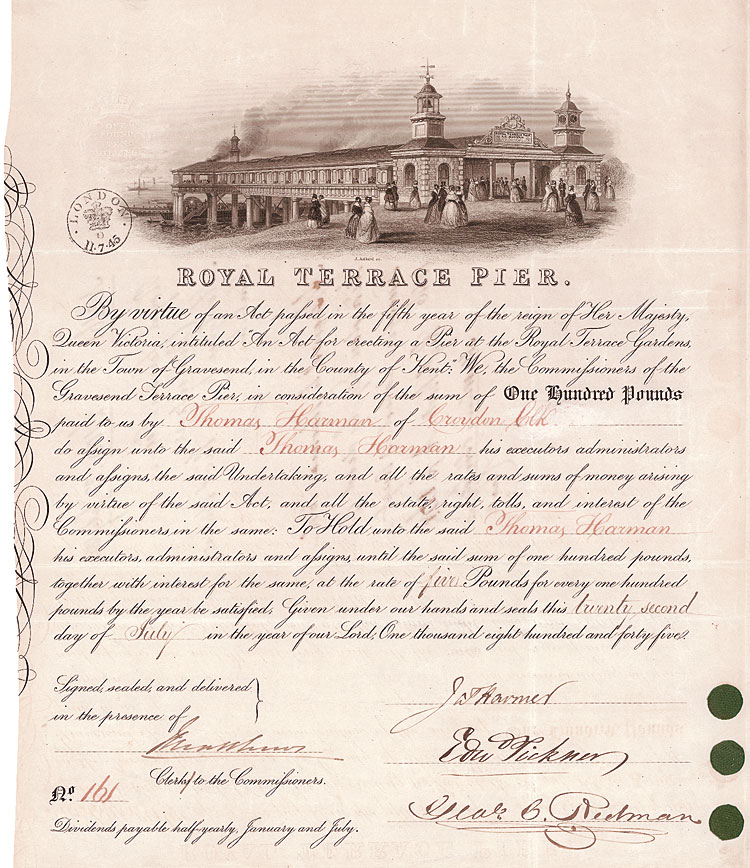 LONDON
11·7·45
ROYAL TERRACE PIER.
By virtue of an Act passed in the fifth year of the reign of Her Majesty,
Queen Victoria, intituled "An Act for erecting a Pier at the Royal Terrace Gardens,
in the Town of Gravesend, in the County of Kent: We, the Commissioners of the
Gravesend Terrace Pier, in consideration of the sum of One Hundred Pounds
paid to us by Thomas Harman of Croydon
do assign unto the said Thomas Harman his executors administrators
and assigns, the said Undertaking, and all the rates and sums of money arising
by virtue of the said Act, and all the estate, right, tolls, and interest of the
Commissioners in the same: To Hold unto the said Thomas Harman
his executors, administrators and assigns, until the said sum of one hundred pounds,
together with interest for the same, at the rate of five Pounds for every one hundred
pounds by the year be satisfied, Given under our hands and seals this twenty second
day of July in the year of our Lord, One thousand eight hundred and forty five.
Signed, sealed, and delivered
in the presence of
Clerk to the Commissioners.
No. 161
Dividends payable half-yearly, January and July.
Redman